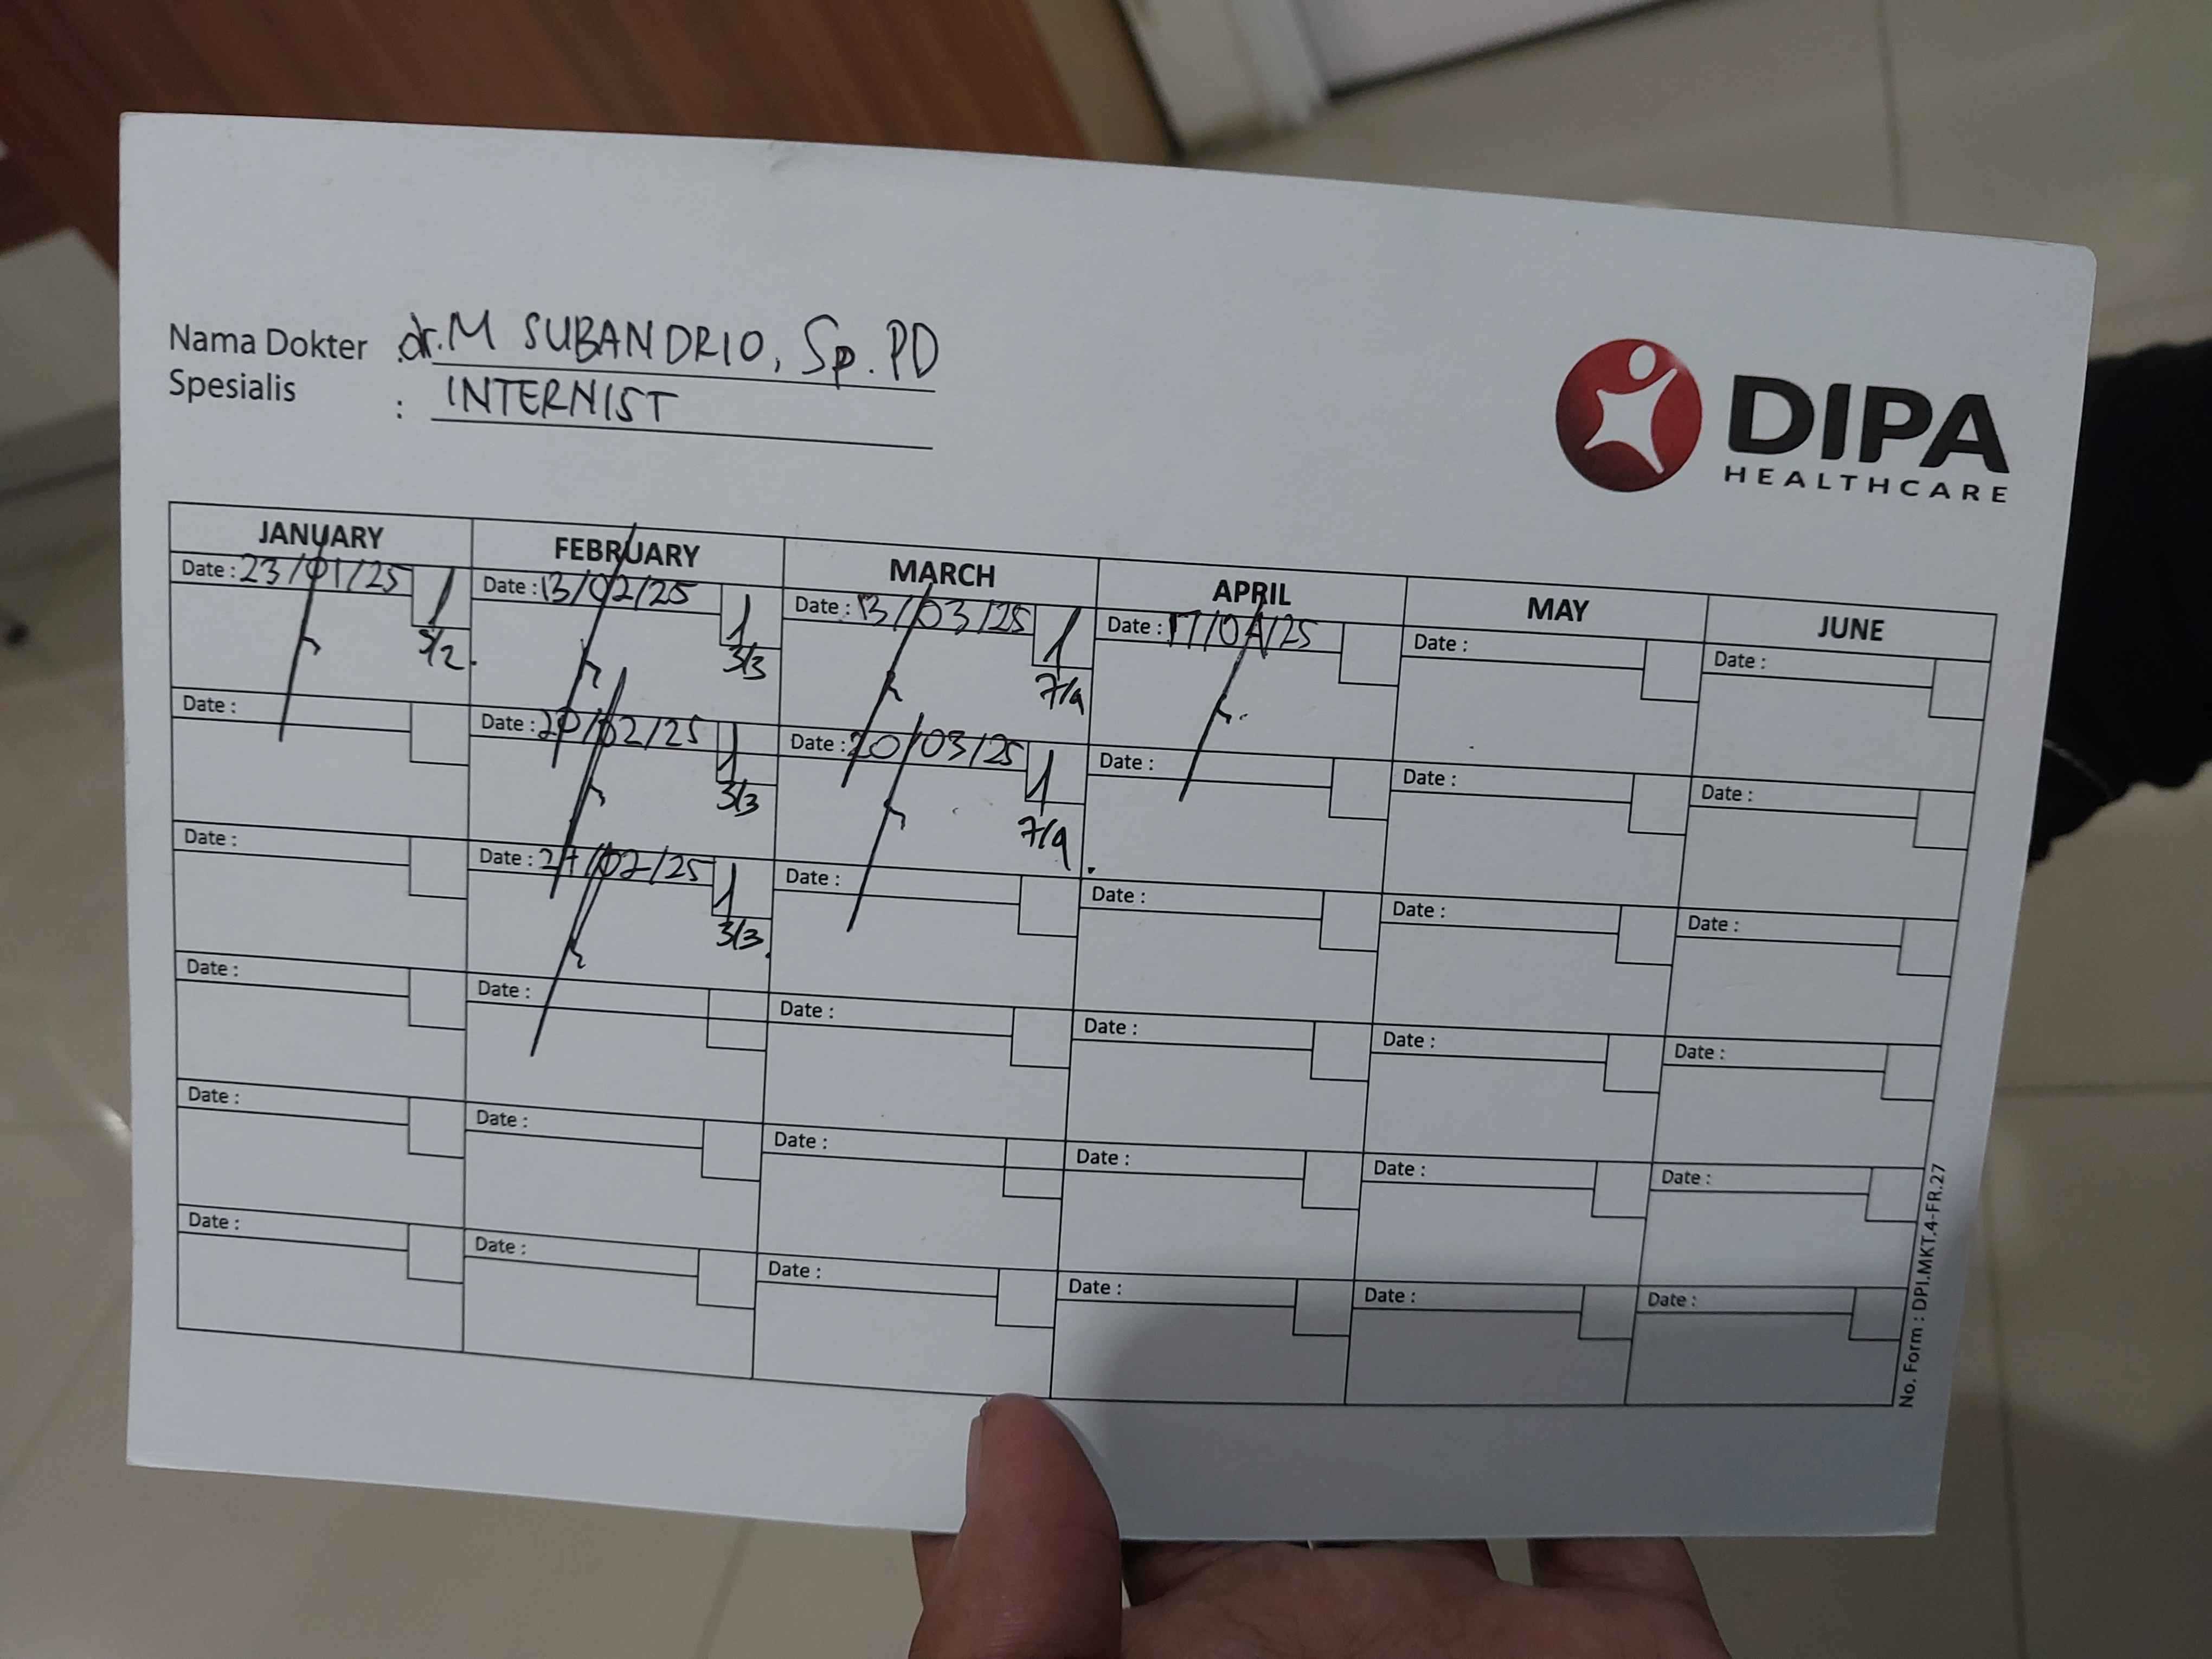 Nama Dokter : dr. M SUBANDRIO, Sp. PD
Spesialis : INTERNIST
DIPA
HEALTHCARE
JANUARY FEBRUARY MARCH APRIL MAY JUNE
Date : 23/01/25 Date : 13/02/25 Date : 13/03/25 Date : 17/04/25 Date : Date :
5/2. 3/3 7/4
Date : Date : 20/02/25 Date : 20/03/25 Date : Date : Date :
3/3 7/4.
Date : Date : 27/02/25 Date : Date : Date : Date :
3/3.
Date : Date : Date : Date : Date : Date :
Date : Date : Date : Date : Date : Date :
Date : Date : Date : Date : Date : Date :
No. Form : DPI.MKT.4-FR.27